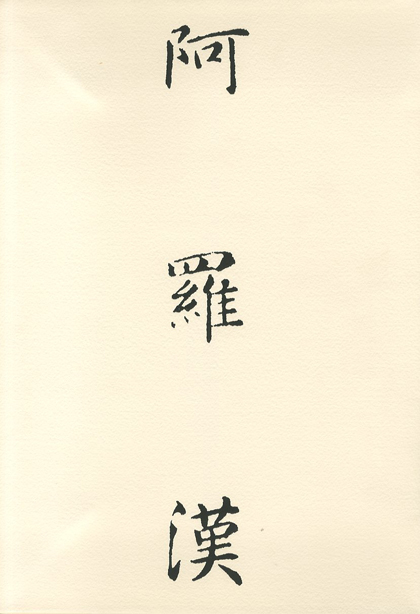 阿羅漢